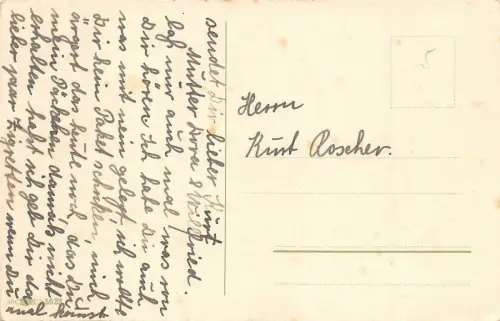 sendet Dir lieber Kurt
Mutter Dora & Wilfried.
laß nur auch mal was von
Dir hören ich habe Dir auch
was mit nein gelegt ich wollte
Dir kein Paket schicken, mich
ärgert das heute noch, das Du
mein Päckchen damals nicht
erhalten hast ich geb dir da
lieber paar Zigretten wenn Du
mal kommst
Herrn
Kurt Roscher.
5